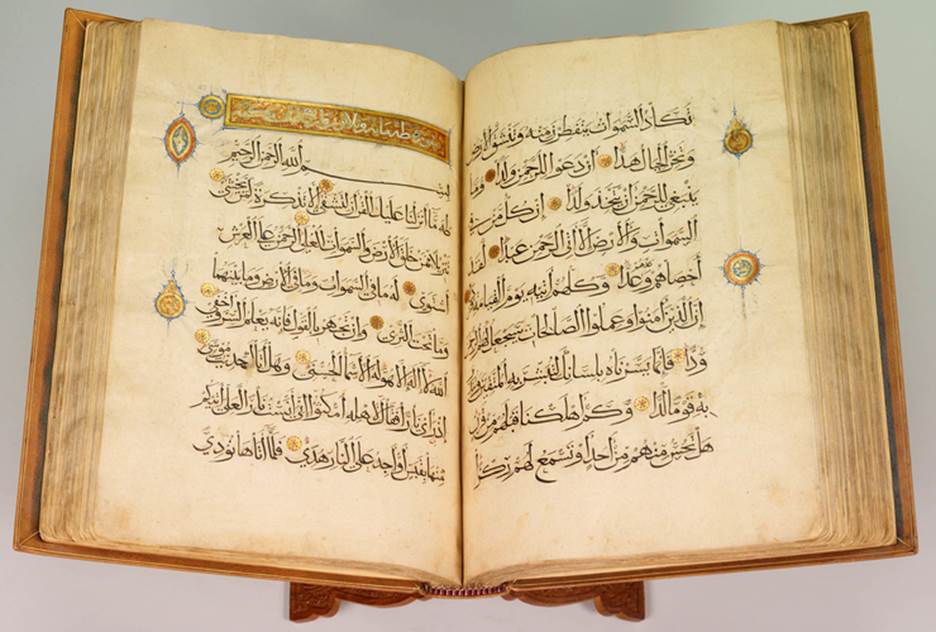 تكاد السموات يتفطرن منه وتنشق الارض
وتخر الجبال هدا ان دعوا للرحمن ولدا وما
ينبغي للرحمن ان يتخذ ولدا ان كل من في
السموات والارض الا اتى الرحمن عبدا لقد
احصاهم وعدهم عدا وكلهم اتيه يوم القيامة
ان الذين امنوا وعملوا الصالحات سيجعل لهم الرحمن
ودا فانما يسرناه بلسانك لتبشر به المتقين وتنذر
به قوما لدا وكم اهلكنا قبلهم من قرن
هل تحس منهم من احد او تسمع لهم ركزا
سورة طه مائة وثلاثون
بسم الله الرحمن الرحيم
طه ما انزلنا عليك القرآن لتشقى الا تذكرة لمن يخشى
تنزيلا ممن خلق الارض والسموات العلى الرحمن على العرش
استوى له ما في السموات وما في الارض وما بينهما
وما تحت الثرى وان تجهر بالقول فانه يعلم السر واخفى
الله لا اله الا هو له الاسما الحسنى وهل اتاك حديث موسى
اذ راى نارا فقال لاهله امكثوا اني انست نارا لعلي اتيكم
منها بقبس او اجد على النار هدى فلما اتاها نودي